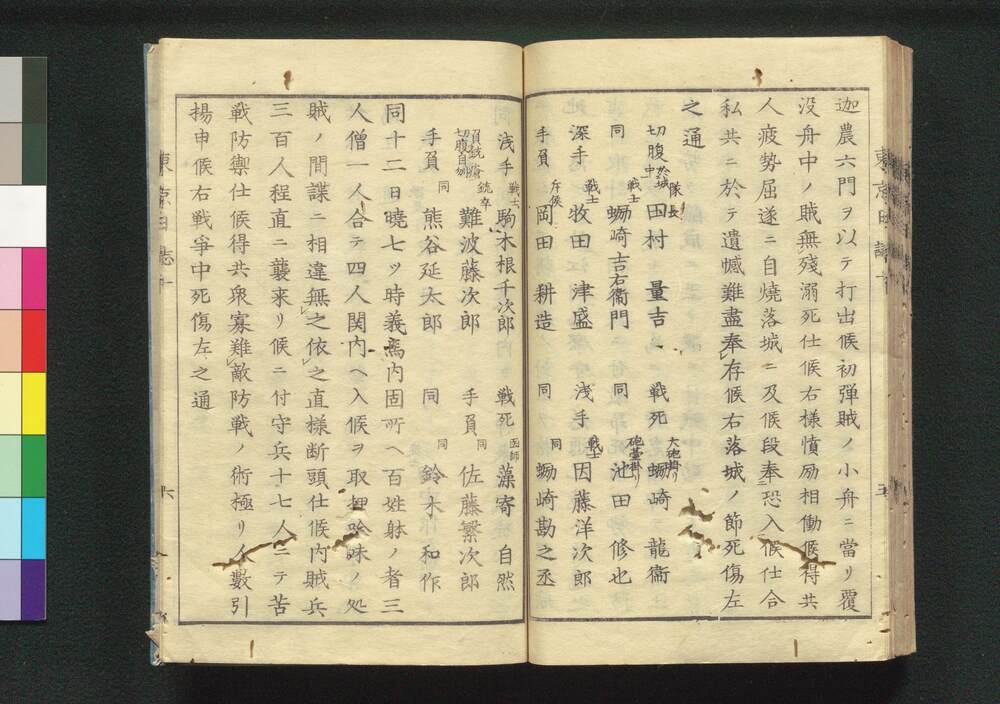 迦農六門ヲ以テ打出候初弾賊ノ小舟ニ當リ覆
没舟中ノ賊無殘溺死仕候右様憤励相働候得共
人疲勢屈遂ニ自燒落城ニ及候段奉恐入候仕合
私共ニ於テ遺憾難盡奉存候右落城ノ節死傷左
之通
切腹 於城中 隊長 田村量吉 戦死 大砲掛リ 蜴崎龍衞
同 戦士 蜴崎吉右衞門 同 池田修也
深手 戦士 牧田津盛 浅手 戦士 因藤洋次郎
手負 斥候 岡田耕造 同 同 蜴崎勘之丞
浅手 戦士 駒木根千次郎 戦死 医師 藻寄自然
銃卒 難波藤次郎 手負 同 佐藤繁次郎
手負 同 熊谷延太郎 同 同 鈴木和作
同十二日曉七ツ時義馬内固所ヘ百姓躰ノ者三
人僧一人合テ四人関内ヘ入候ヲ取押吟味ノ処
賊ノ間諜ニ相違無之依之直様断頭仕候内賊兵
三百人程直ニ襲来リ候ニ付守兵十七人ニテ苦
戦防禦仕候得共衆寡難敵防戦ノ術極リ人數引
揚申候右戦爭中死傷左之通
六